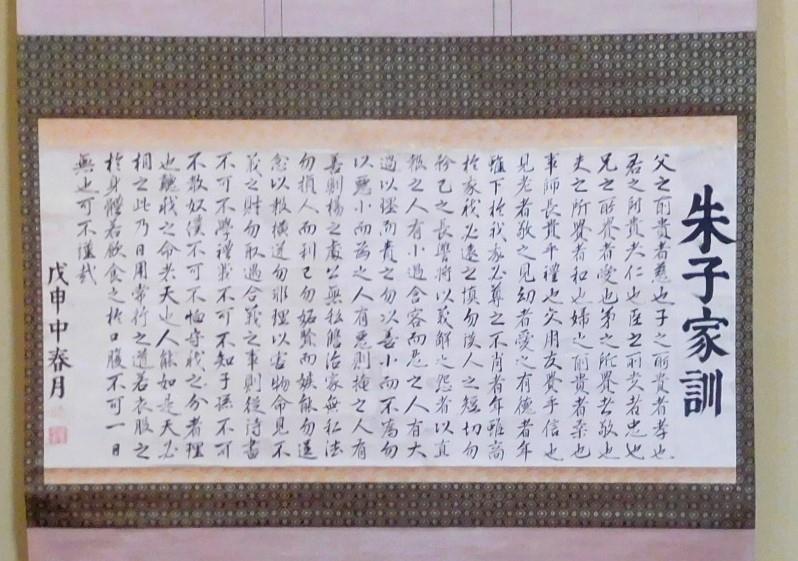 朱子家訓
父之所貴者慈也子之所貴者孝也
君之所貴者仁也臣之所貴者忠也
兄之所貴者愛也弟之所貴者敬也
夫之所貴者和也婦之所貴者柔也
事師長貴乎禮也交朋友貴乎信也
見老者敬之見幼者愛之有德者年
雖下於我我必尊之不肖者年雖高
於我我必遠之慎勿談人之短切勿
矜己之長讐者以義解之怨者以直
報之人有小過含容而忍之人有大
過以理而責之勿以善小而不為勿
以惡小而為之人有惡則掩之人有
善則揚之處公無私讐治家無私法
勿損人而利己勿妬賢而嫉能勿逞
忿以報橫逆勿非理以害物命見不
義之財勿取遇合義之事則從詩書
不可不學禮義不可不知子孫不可
不教奴僕不可不恤守我之分者理
也聽我之命者天也人能如是天必
相之此乃日用常行之道若衣服之
於身體若飲食之於口腹不可一日
無也可不謹哉
戊申中春月